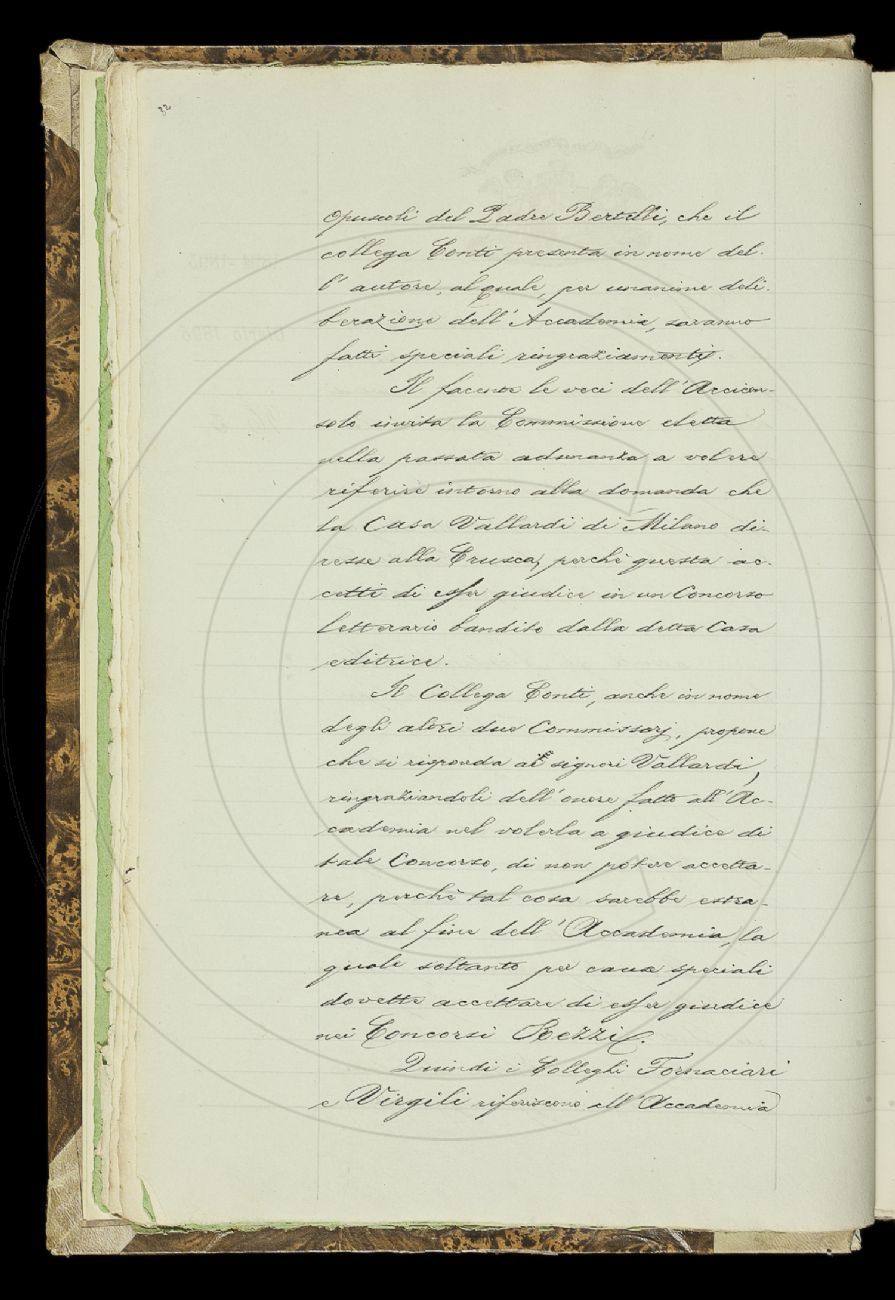 32
opuscoli del Padre Bertelli, che il
collega Conti presenta in nome del-
l'autore, al quale, per unanime deli-
berazione dell'Accademia, saranno
fatti speciali ringraziamenti.
Il facente le veci dell'Arcicon-
solo invita la Commissione eletta
nella passata adunanza a volere
riferire intorno alla domanda che
la Casa Vallardi di Milano di-
resse alla Crusca, perchè questa ac-
cetti di esser giudice in un Concorso
letterario bandito dalla detta Casa
editrice.
Il Collega Conti, anche in nome
degli altri due Commissarj, propone
che si risponda ai signori Vallardi,
ringraziandoli dell'onore fatto all'Ac-
cademia nel volerla a giudice di
tale Concorso, di non potere accetta-
re, perchè tal cosa sarebbe estra-
nea al fine dell'Accademia, la
quale soltanto per causa speciali
dovette accettare di esser giudice
nei Concorsi Rezzi.
Quindi i Colleghi Fornaciari
e Virgili riferiscono all'Accademia